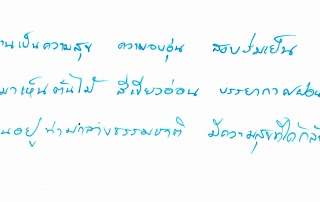 านเป็นความสุข ความอบอุ่น สงบร่มเย็น
มาเห็นต้นไม้ สีเขียวอ่อน บรรยากาศผ่อน
นอยู่ ท่ามกลางธรรมชาติ มีความสุขที่ได้กลับ